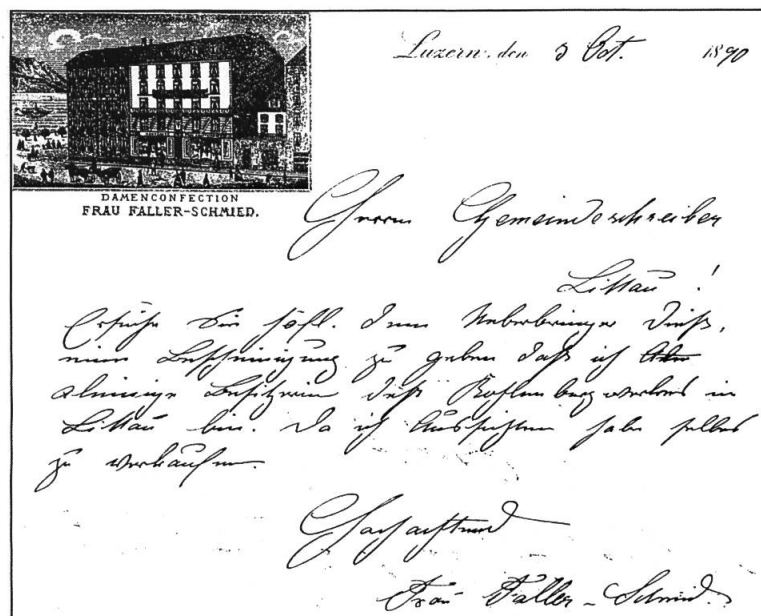 Luzern, den 3 Oct. 1890
DAMENCONFECTION
FRAU FALLER-SCHMIED.
Herrn Gemeindeschreiber
Littau !
Ersuche Sie höfl. dem Ueberbringer dieß,
eine Bescheinigung zu geben daß ich
alleinige Besitzerin deß Kohlenbergwerkes in
Littau bin. Da ich Aussichten habe selbes
zu verkaufen.
Hochachtend
Frau Faller-Schmid.